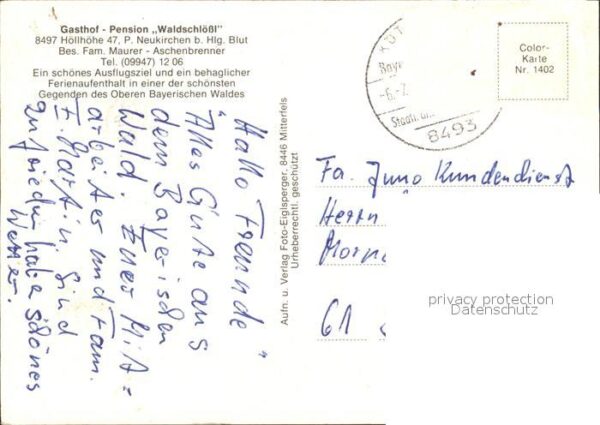 Gasthof - Pension „Waldschlößl"
8497 Höllhöhe 47, P. Neukirchen b. Hlg. Blut
Bes. Fam. Maurer - Aschenbrenner
Tel. (09947) 12 06
Ein schönes Ausflugsziel und ein behaglicher
Ferienaufenthalt in einer der schönsten
Gegenden des Oberen Bayerischen Waldes
Hallo Freunde"
Alles Gute aus
dem Bayerischen
Wald. Euer Mit=
arbeiter und Fam.
F. Martin. Sind
zufrieden habe schönes
Wetter.
Aufn. u. Verlag Foto-Eiglsperger, 8446 Mitterfels
Urheberrechtl. geschützt
KÖT
Bayr
-6.-7.
Staatl.
8493
Color-
Karte
Nr. 1402
Fa. Juno Kundendienst
Herrn
61
privacy protection
Datenschutz